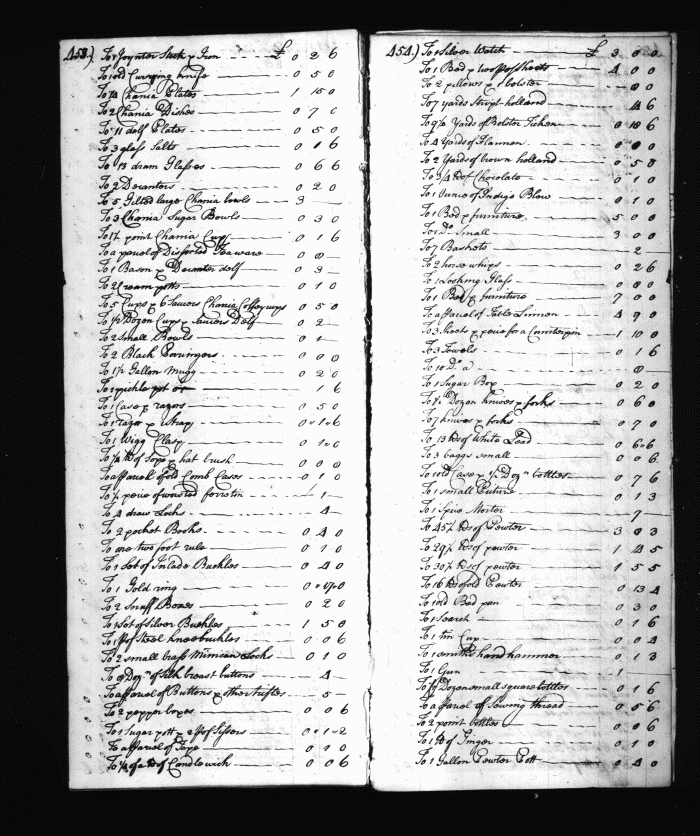 453) To 1 Joynter Stock & Iron £ 0 2 6
To old Currying knife 0 5 0
Chania Plates 1 15 0
To 2 Chania Dishes 0 7 0
To 11 dolf Plates 0 5 0
To 3 glass Salts 0 1 6
To 13 dram Glasses 0 6 6
To 2 Decanters 0 2 0
To 5 Gilted large Chania bowls 3
To 3 Chania Sugar Bowls 0 3 0
point Chania Cup 0 1 6
To a parcel of Teaware 0 8
To 1 Bason & Decanter dolf 0 3
To 2 Cream potts 0 1 0
To 5 Cups & 6 Saucers Chania Coffey cups 0 5 0
To ½ Dozen Cups & Saucers Dolf 0 2
To 2 Small Bowls 0 1
To 2 Black Porringers 0 0 0
To 1½ Gallon Mugg 0 2 0
To 1 pickle pot 1 6
To 1 Case & razors 0 5 0
To 1 razor & Strap 0 1 6
To 1 Wigg Clasp 0 1 0
of Sope & hat brush 0 0 8
To a parcel of old Comb Cases 0 1 0
of worsted forrotin 1
To 4 draw Locks 4
To 2 pocket Books 0 4 0
To one two foot rule 0 1 0
To 1 Sot of Inlade Buckles 0 4 0
To 1 Gold ring 0 17 0
To 2 Snuff Boxes 0 2 0
To 1 Sot of Silver Buckles 1 5 0
To 1 pr of Steel knee buckles 0 0 6
To 2 small brass Locks 0 1 0
To 9 Dozn of Silk breast buttons 4
To a parcel of Buttons & other trifles 5
To 2 pepper boxes 0 0 6
To 1 Sugar pott & 2 pr of Sisors 0 1 2
To a parcel of Tape 0 1 0
To ¼ of a lb of Candlewick 0 0 6
454) To 1 Silver Watch £ 3 0 0
To 1 Bed & two pr of Sheets 4 0 0
To 2 pillows & 1 bolster 8 0
To 7 yards Stript holland 14 6
To 9½ Yards of Bolster Ticken 0 18 6
To 4 Yards of Flannen
To 2 Yards of brown holland 0 5 8
To 3/4 lb of Chocolate 0 1 0
To 1 Ounce of Indigo Blow 0 1 0
To 1 Bed & furniture 5 0 0
To 1 Do Small 3 0 0
To 7 Baskets 2
To 2 horse whips 2 6
To 1 Looking Glass 0 8 0
To 1 Bed & furniture 7 0 0
To a parcel of Table Linnen 4 9 0
To 3 Sheets & peice for a Counterpin 1 10 0
To 3 Towels 0 1 6
To 10 Do a 8
To 1 Sugar Box 0 2 0
To ½ Dozen knives & forks 0 6 0
To 7 knives & forks 0 7 0
To 13 lbs of White Lead 0 6 6
To 3 baggs small 0 0 6
To 1 old Case & ½ Dozn bottles 0 7 6
To 1 small Picture 0 1 3
To 1 Spice Morter 7
To 45½ lbs of Pewter 3 8 3
To 29½ lbs of pewter 1 14 5
To 30½ lbs of pewter 1 5 5
To 16 lbs of old Pewter 0 13 4
To 1 old Bed pan 0 3 0
To 1 Searct 0 1 6
To 1 Tin Cup 0 0 4
To 1 smiths hand hammer 1 3
To 1 Gun 1
To ½ Dozen small square bottles 0 1 6
To a parcel of Sowing thread 0 5 6
To 2 point bottles 0 0 6
To 1 lb of Ginger 0 1 0
To 1 Gallon Pewter Pott 0 4 0